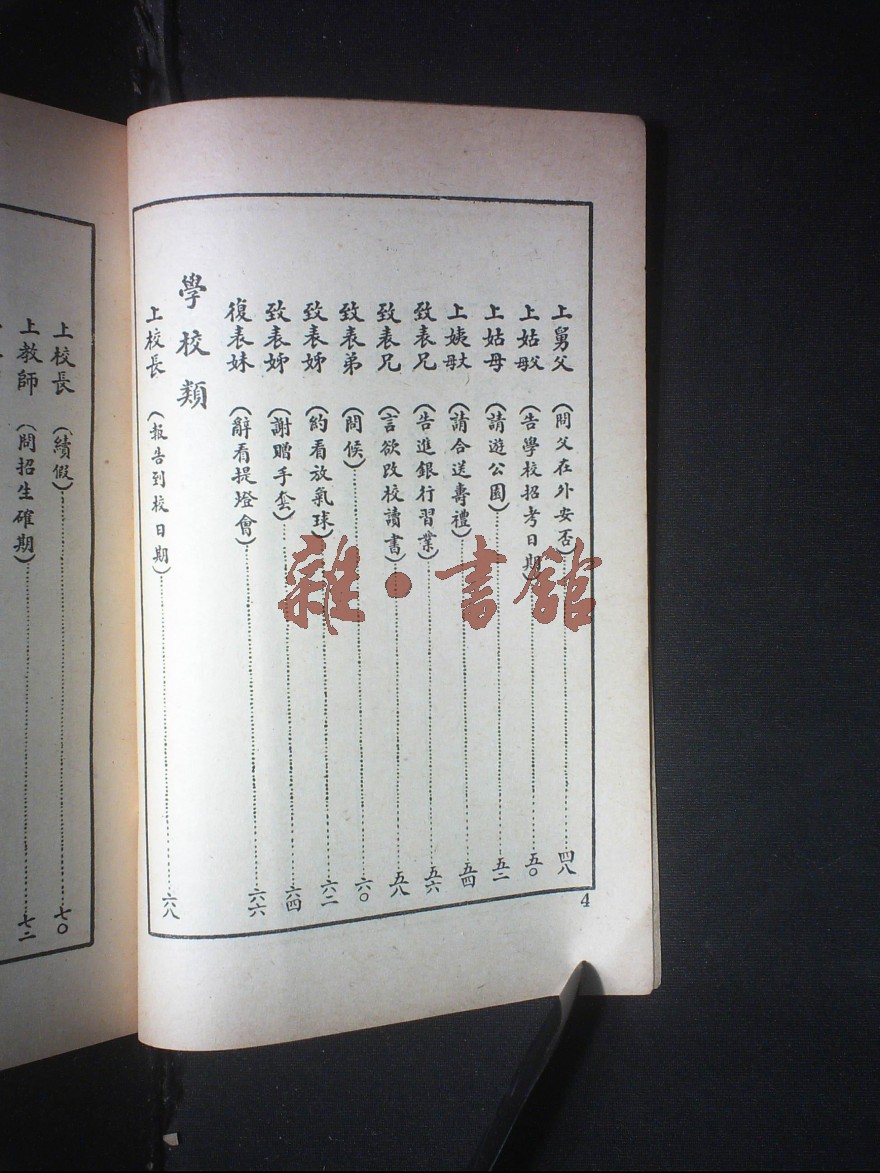 上舅父（問父在外安否）……四八
上姑𤕒（告學校招考日期）……五〇
上姑母（請遊公園）……五二
上姨𤕒（請合送壽禮）……五四
致表兄（告進銀行習業）……五六
致表兄（言欲改校讀書）……五八
致表弟（問候）……六〇
致表姊（約看放氣球）……六二
致表姊（謝贈手套）……六四
復表妹（辭看提燈會）……六六
學校類
上校長（報告到校日期）……六八
4
上校長（續假）……七〇
上教師（問招生確期）……七二
雜·書館